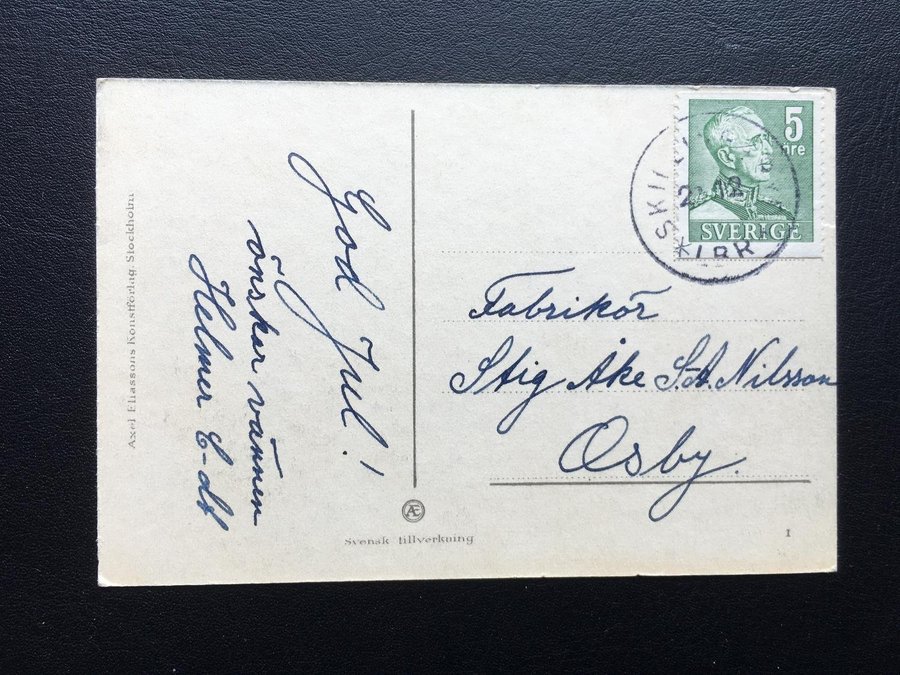 God Jul!
önskar vännen
Helmer E-dt
Axel Eliassons Konstförlag. Stockholm
Svensk tillverkning
Æ
5
öre
SVERIGE
Fabrikör
Stig Åke S-A. Nilsson
Osby.
1